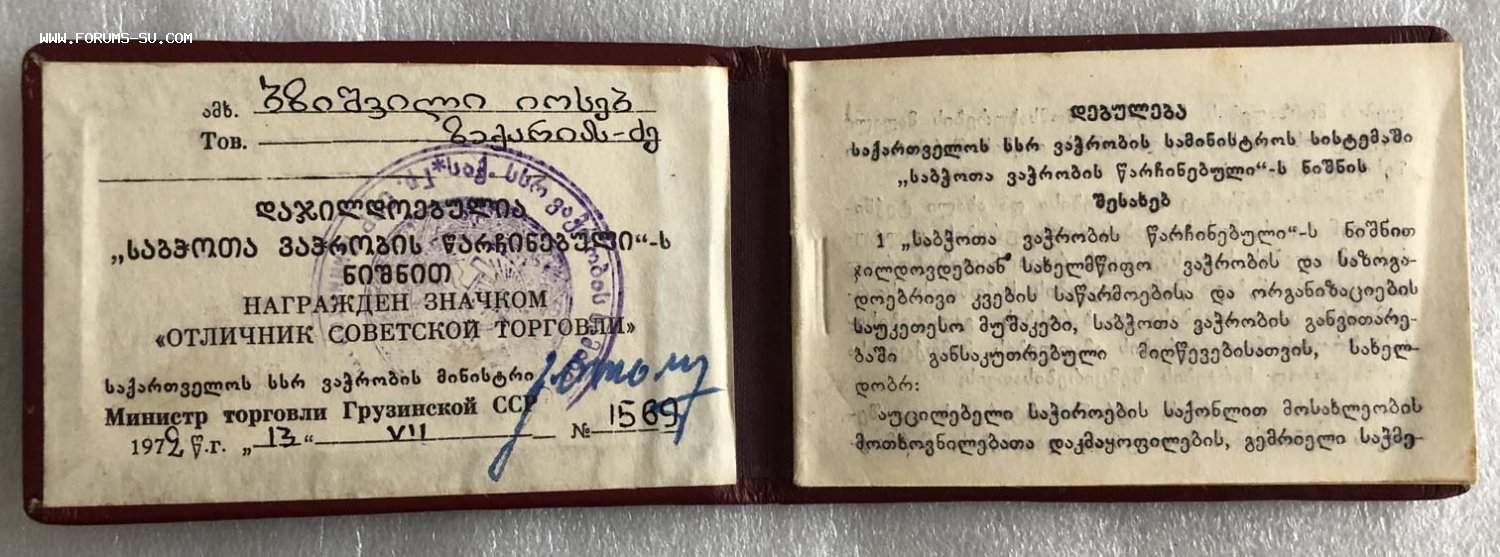 WWW.FORUMS-SU.COM
ამხ. ბზიშვილი იოსებ
Тов. ზაქარიას-ძე
დაჯილდოებულია
„საბჭოთა ვაჭრობის წარჩინებული“-ს
ნიშნით
НАГРАЖДЕН ЗНАЧКОМ
«ОТЛИЧНИК СОВЕТСКОЙ ТОРГОВЛИ»
საქართველოს სსრ ვაჭრობის მინისტრი
Министр торговли Грузинской ССР
1972 წ.г. „13“ VII № 1569
*საქ. სსრ ვაჭრობის
დებულება
საქართველოს სსრ ვაჭრობის სამინისტროს სისტემაში
„საბჭოთა ვაჭრობის წარჩინებული“-ს ნიშნის
შესახებ
1 „საბჭოთა ვაჭრობის წარჩინებული“-ს ნიშნით
ჯილდოვდებიან სახელმწიფო ვაჭრობის და საზოგა-
დოებრივი კვების საწარმოებისა და ორგანიზაციების
საუკეთესო მუშაკები, საბჭოთა ვაჭრობის განვითარე-
ბაში განსაკუთრებული მიღწევებისათვის, სახელ-
დობრ:
აუცილებელი საჭიროების საქონლით მოსახლეობის
მოთხოვნილებათა დაკმაყოფილების, გემრიელი საჭმე-